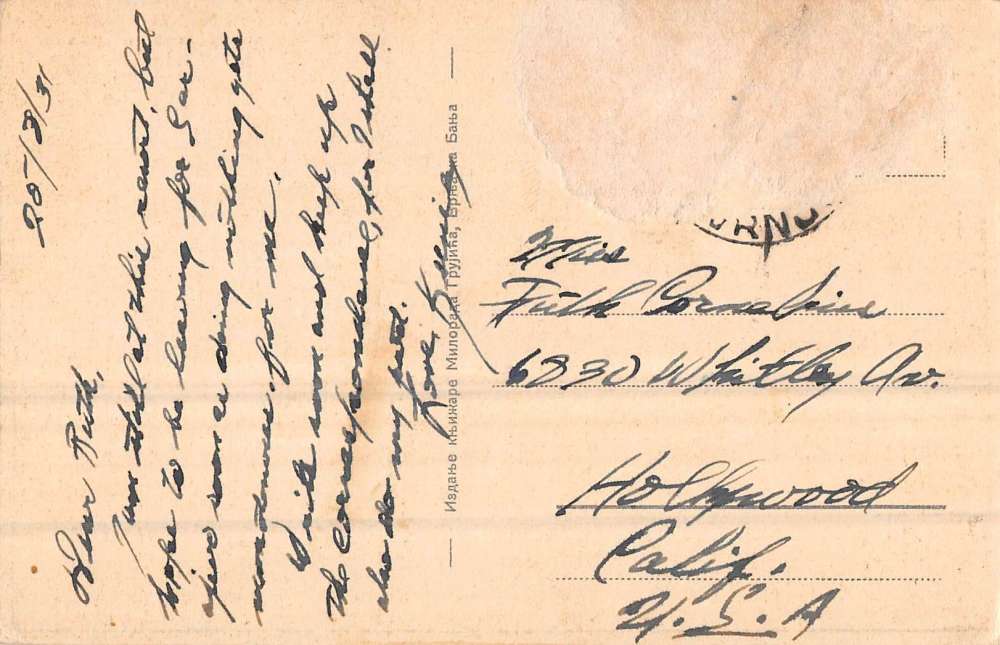 20/8/31
Dear Ruth,
I'm still at this resort, but
hope to be leaving for Sar-
ajevo soon as doing nothing gets
monotonous for me.
Write soon and keep up
the correspondence, for I shall
also do my part.
Love,
Издање књижаре Милорада Грујића, Врњачка Бања
Miss
Ruth Cornelius
6830 Whitley Av.
Hollywood
Calif.
U.S.A